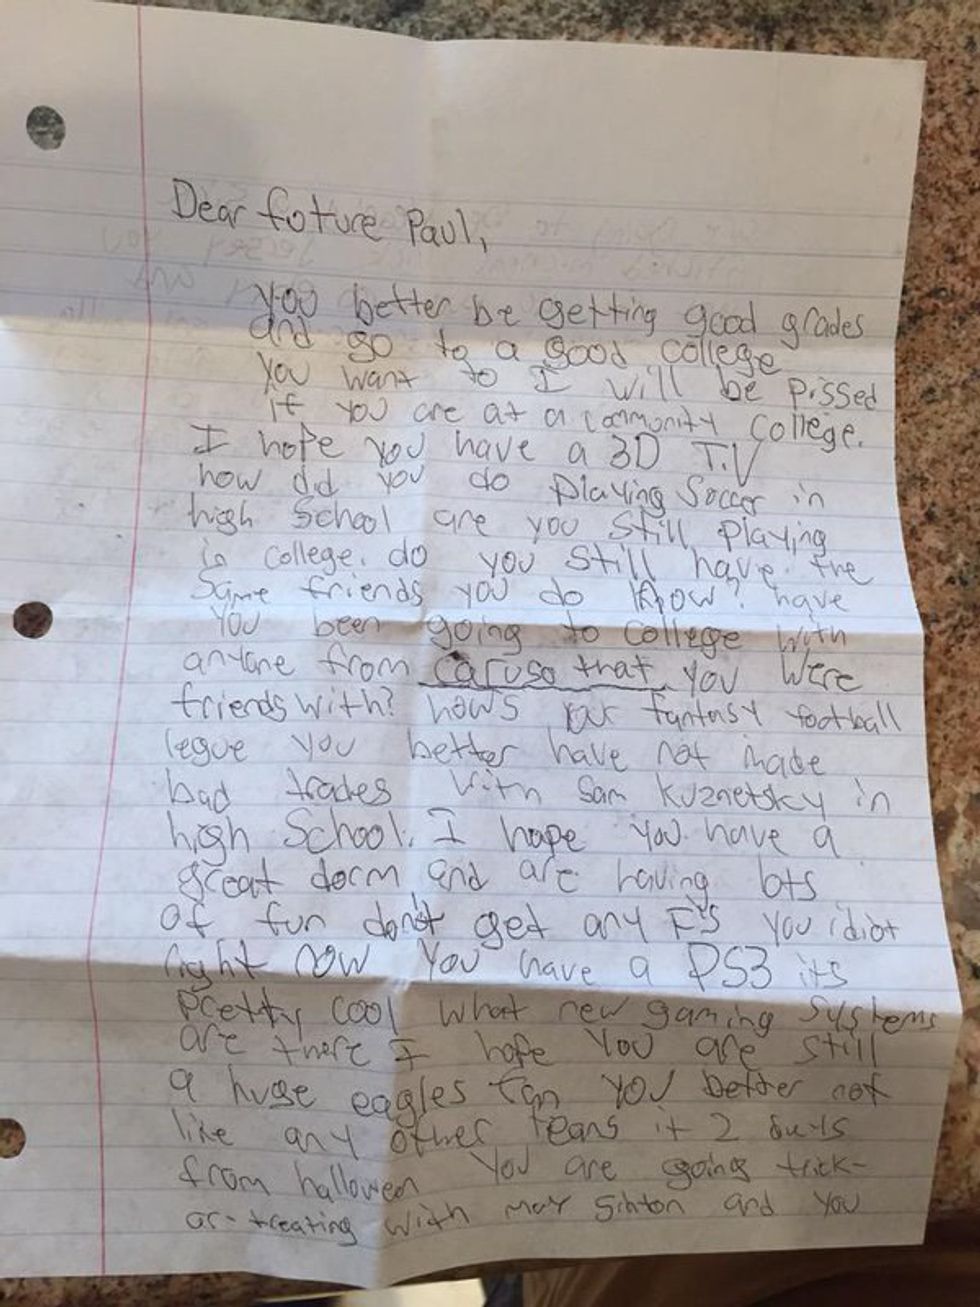 Dear foture Paul,
you better be getting good grades
and go to a good college
you want to I will be pissed
if you are at a community college.
I hope you have a 3D T.V
how did you do playing soccer in
high school are you still playing
in college. do you still have the
same friends you do know? have
you been going to college with
anyone from Caruso that you were
friends with? hows your fantasy football
legue you better have not made
bad trades with Sam Kuznetsky in
high school. I hope you have a
great dorm and are having lots
of fun don't get any F's you idiot
right now you have a PS3 its
pretty cool what new gaming systems
are there I hope you are still
a huge eagles fan you better not
like any other teams it 2 days
from halloween you are going trick-
or-treating with and you